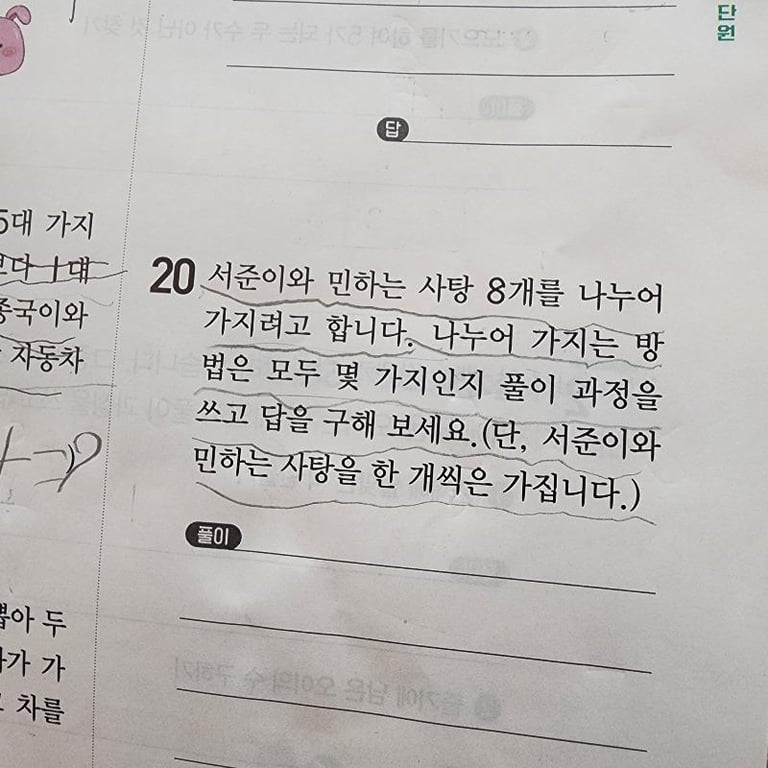 단
원
답
5대 가지
보다 1대
종국이와
자동차
20 서준이와 민하는 사탕 8개를 나누어
가지려고 합니다. 나누어 가지는 방
법은 모두 몇 가지인지 풀이 과정을
쓰고 답을 구해 보세요.(단, 서준이와
민하는 사탕을 한 개씩은 가집니다.)
풀이
뽑아 두
가 가
차를